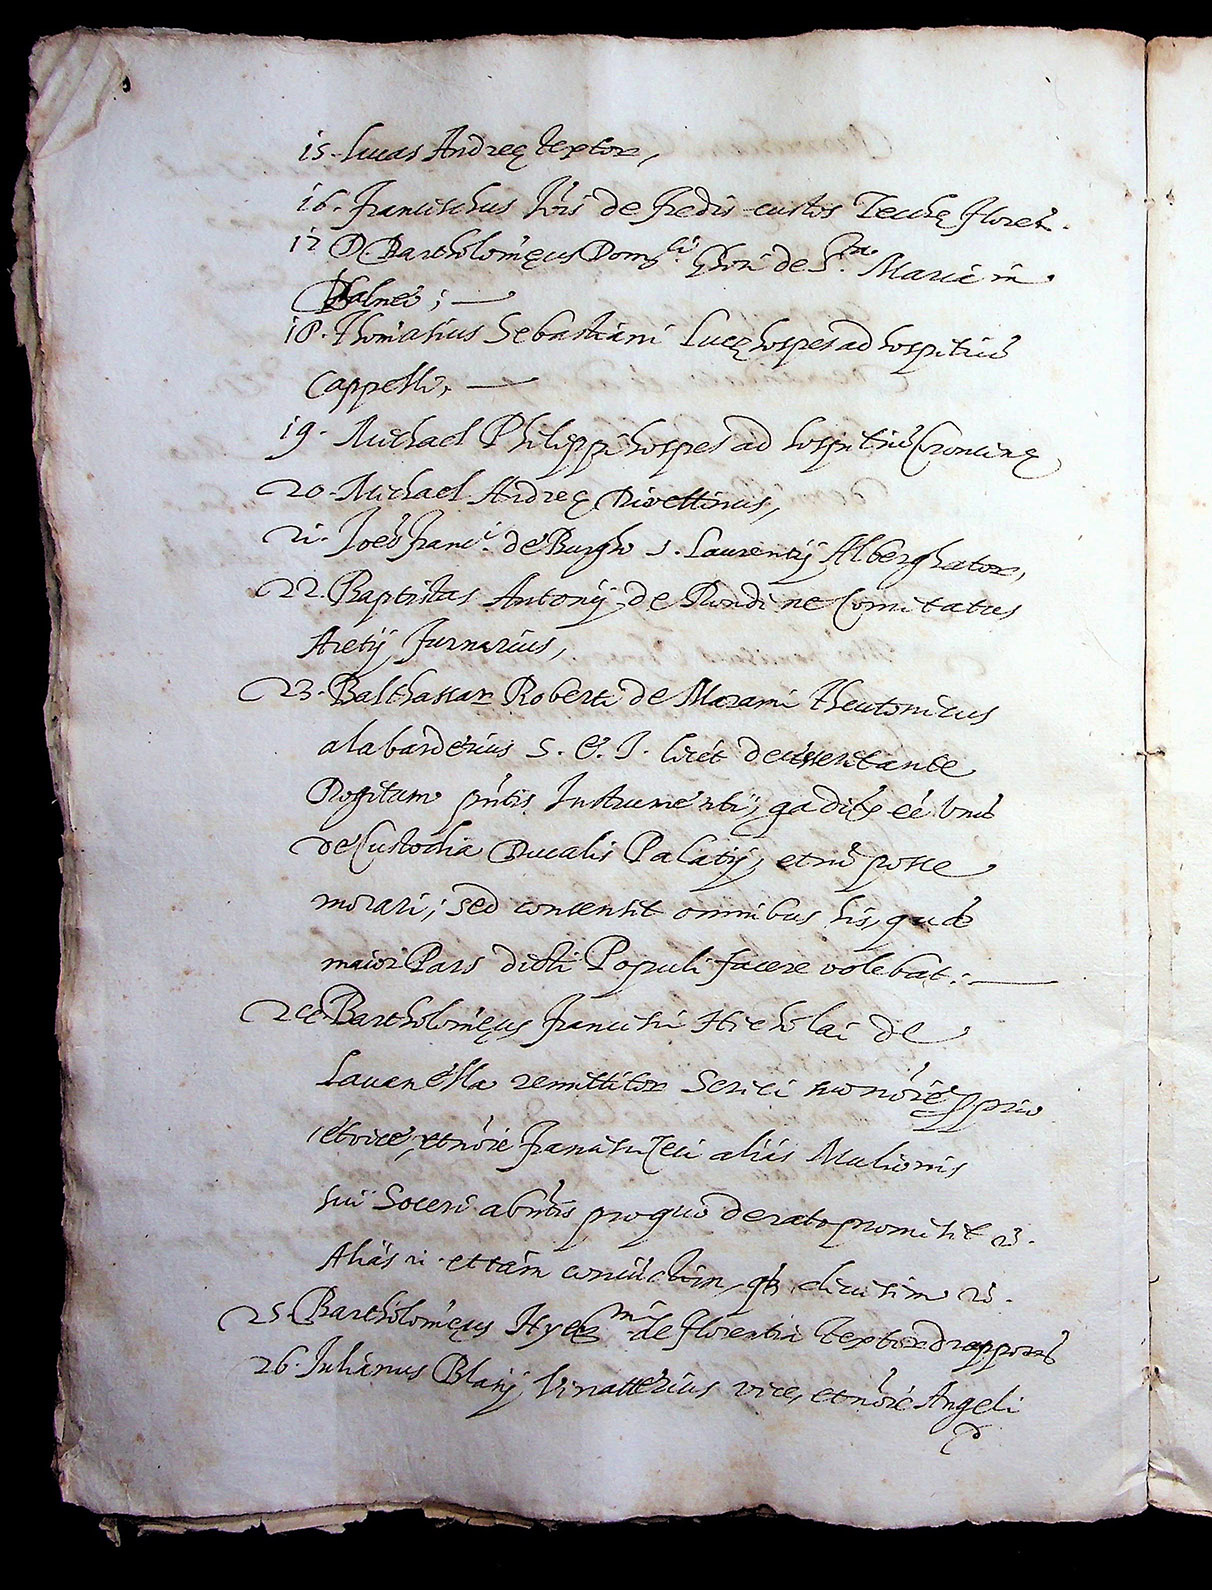 15. Lucas Andreę textor,
16. Francischus Jõis de fredis custos Zecchę floreñ.
17 D. Bartholomęus Dom.ci Ghori de S.ta Maria in
Balnei; —
18. Thomasius Sebastiani Lucę hospes ad hospitiũ
Cappelli, —
19. Michael Philippi hospes ad hospitiũ Coroncinę
20. Michael Andreę Divettinus,
21. Joẽs Franc.i de Burgho S. Laurentij Alberghator,
22. Baptistas Antonij de Rondine Comitatus
Aretij furnarius,
23. Balthassar Roberti de Marami theutonicus
alabarderius S. E. I. licet
Rogitum pñtis Instrumenti, qa dixit eẽ unũ
de Custodia Ducalis Palatij, et nõ posse
morari; sed consensit omnibus his, quæ
maior Pars dicti Populi facere volebat: —
24. Bartholomęus Francisci Nicholai de
Lavanella remittitor Serici suo nõie pprio
et vice, et nõie Francisci aliàs Mulionis
sui Soceri absñtis pro quo de rato promisit
Aliàs et tam coniũctim, q̃ divisim
25. Bartholomęus Hyer.mi de florentia textor drapporũ
26. Julianus Blasij Vinatterius vice, et nõie Angeli